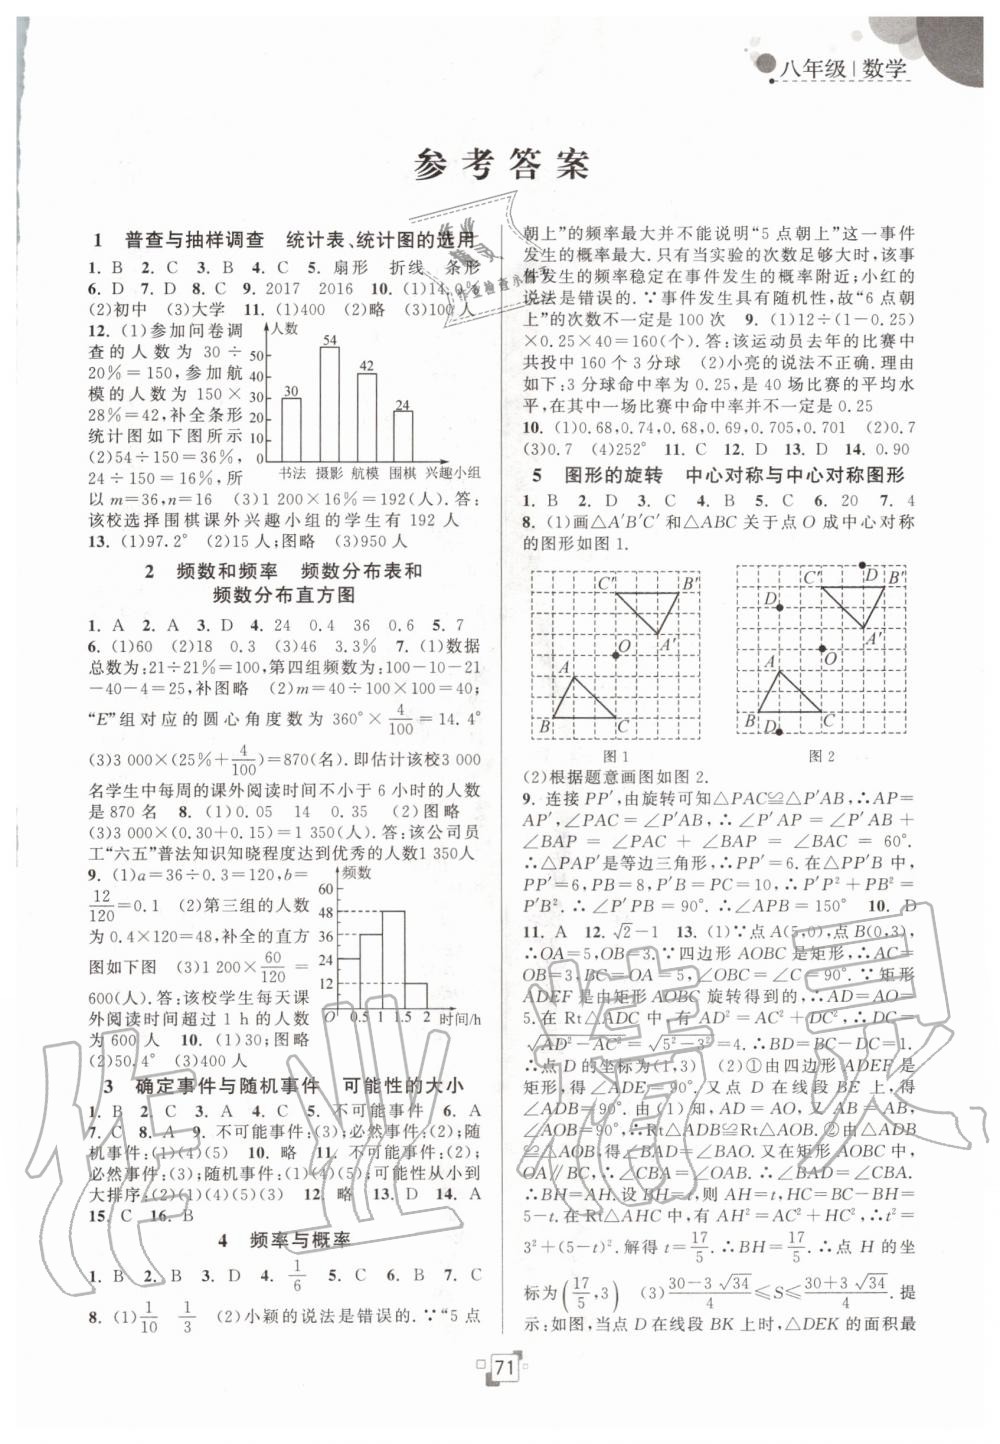 八年级 | 数学
参考答案
1 普查与抽样调查 统计表、统计图的选用
1. B 2. C 3. B 4. C 5. 扇形 折线 条形
6. D 7. D 8. C 9. 2017 2016 10. (1)14.0%
(2)初中 (3)大学 11. (1)400 (2)略 (3)100人
12. (1)参加问卷调
查的人数为 30÷
20%=150,参加航
模的人数为 150×
28%=42,补全条形
统计图如下图所示
(2)54÷150=36%,
24÷150=16%,所
人数
60
50
40
30
20
10
0
30
54
42
24
书法 摄影 航模 围棋 兴趣小组
以 m=36,n=16 (3)1 200×16%=192(人).答:
该校选择围棋课外兴趣小组的学生有 192 人
13. (1)97.2° (2)15人;图略 (3)950人
2 频数和频率 频数分布表和
频数分布直方图
1. A 2. A 3. D 4. 24 0.4 36 0.6 5. 7
6. (1)60 (2)18 0.3 (3)46 3.3% 7. (1)数据
总数为:21÷21%=100,第四组频数为:100-10-21
-40-4=25,补图略 (2)m=40÷100×100=40;
“E”组对应的圆心角度数为 360°×4/100=14.4°
(3)3 000×(25%+4/100)=870(名).即估计该校3 000
名学生中每周的课外阅读时间不小于 6 小时的人数
是 870 名 8. (1)0.05 14 0.35 (2)图略
(3)3 000×(0.30+0.15)=1 350(人).答:该公司员
工“六五”普法知识知晓程度达到优秀的人数1 350人
9. (1)a=36÷0.3=120,b=
12/120=0.1 (2)第三组的人数
为 0.4×120=48,补全的直方
图如下图 (3)1 200×60/120=
600(人).答:该校学生每天课
外阅读时间超过 1 h 的人数
为 600 人 10. (1)30;图略
(2)50.4° (3)400人
频数
60
48
36
24
12
O 0.5 1 1.5 2 时间/h
3 确定事件与随机事件 可能性的大小
1. B 2. C 3. A 4. C 5. 不可能事件 6. A
7. C 8. A 9. 不可能事件:(3);必然事件:(2);随
机事件:(1)(4)(5) 10. 略 11. 不可能事件:(2);
必然事件:(3);随机事件:(1)(4)(5);可能性从小到
大排序:(2)(1)(4)(5)(3) 12. 略 13. D 14. A
15. C 16. B
4 频率与概率
1. B 2. B 3. D 4. 1/6 5. B 6. B 7. C
8. (1)1/10 1/3 (2)小颖的说法是错误的.∵“5 点
朝上”的频率最大并不能说明“5 点朝上”这一事件
发生的概率最大.只有当实验的次数足够大时,该事
件发生的频率稳定在事件发生的概率附近;小红的
说法是错误的.∵事件发生具有随机性,故“6点朝
上”的次数不一定是 100 次 9. (1)12÷(1-0.25)
×0.25×40=160(个).答:该运动员去年的比赛中
共投中 160 个 3 分球 (2)小亮的说法不正确.理由
如下:3 分球命中率为 0.25,是 40 场比赛的平均水
平,在其中一场比赛中命中率并不一定是 0.25
10. (1)0.68,0.74,0.68,0.69,0.705,0.701 (2)0.7
(3)0.7 (4)252° 11. C 12. D 13. D 14. 0.90
5 图形的旋转 中心对称与中心对称图形
1. B 2. D 3. C 4. B 5. C 6. 20 7. 4
8. (1)画△A′B′C′和△ABC 关于点 O 成中心对称
的图形如图 1.
C′ B′
A′
O
A
B C
图 1
C′ D B′
D
A′
O
A
B D C
图 2
(2)根据题意画图如图 2.
9. 连接 PP′,由旋转可知△PAC≌△P′AB,∴AP=
AP′,∠PAC=∠P′AB,∴∠P′AP=∠P′AB+
∠BAP=∠PAC+∠BAP=∠BAC=60°.
∴△PAP′是等边三角形,∴PP′=6.在△PP′B 中,
PP′=6,PB=8,P′B=PC=10,∴P′P²+PB²=
P′B².∴∠P′PB=90°.∴∠APB=150° 10. D
11. A 12. √2-1 13. (1)∵点 A(5,0),点 B(0,3),
∴OA=5,OB=3.∵四边形 AOBC 是矩形,∴AC=
OB=3,BC=OA=5,∠OBC=∠C=90°.∵矩形
ADEF 是由矩形 AOBC 旋转得到的,∴AD=AO=
5.在 Rt△ADC 中,有 AD²=AC²+DC²,∴DC=
√AD²-AC²=√5²-3²=4.∴BD=BC-DC=1.
∴点 D 的坐标为(1,3) (2)①由四边形 ADEF 是
矩形,得∠ADE=90°.又点 D 在线段 BE 上,得
∠ADB=90°.由(1)知,AD=AO,又 AB=AB,
∠AOB=90°,∴Rt△ADB≌Rt△AOB.②由△ADB
≌△AOB,得∠BAD=∠BAO.又在矩形 AOBC 中,
OA∥BC,∴∠CBA=∠OAB.∴∠BAD=∠CBA.
∴BH=AH.设 BH=t,则 AH=t,HC=BC-BH=
5-t.在 Rt△AHC 中,有 AH²=AC²+HC²,∴t²=
3²+(5-t)².解得 t=17/5.∴BH=17/5.∴点 H 的坐
标为(17/5,3) (3)(30-3√34)/4≤S≤(30+3√34)/4.提
示:如图,当点 D 在线段 BK 上时,△DEK 的面积最
71
作业精灵